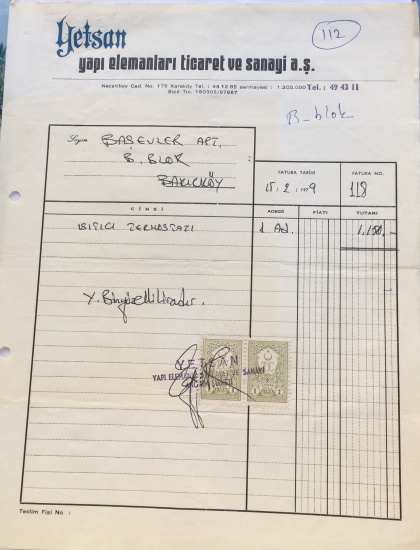 112
Yetsan
yapı elemanları ticaret ve sanayi a.ş.
Necatibey Cad. No. 175 Karaköy Tel. : 44 12 65 sermayesi : 1.200.000 Tel. : 49 43 11
Sicil Tic. 150305/97887
B-blok
Sayın BAŞEVLER APT.
B. BLOK
BAKIRKÖY
FATURA TARİHİ FATURA NO.
15.2.1979 118
CİNSİ ADEDİ FİATI TUTARI
ISITICI TERMOSTATI 1 Ad. 1.150.-
Y. Binyüzelliliradır.
YETSAN
YAPI ELEMANLARI TİCARET VE SANAYİ
Teslim Fişi No :